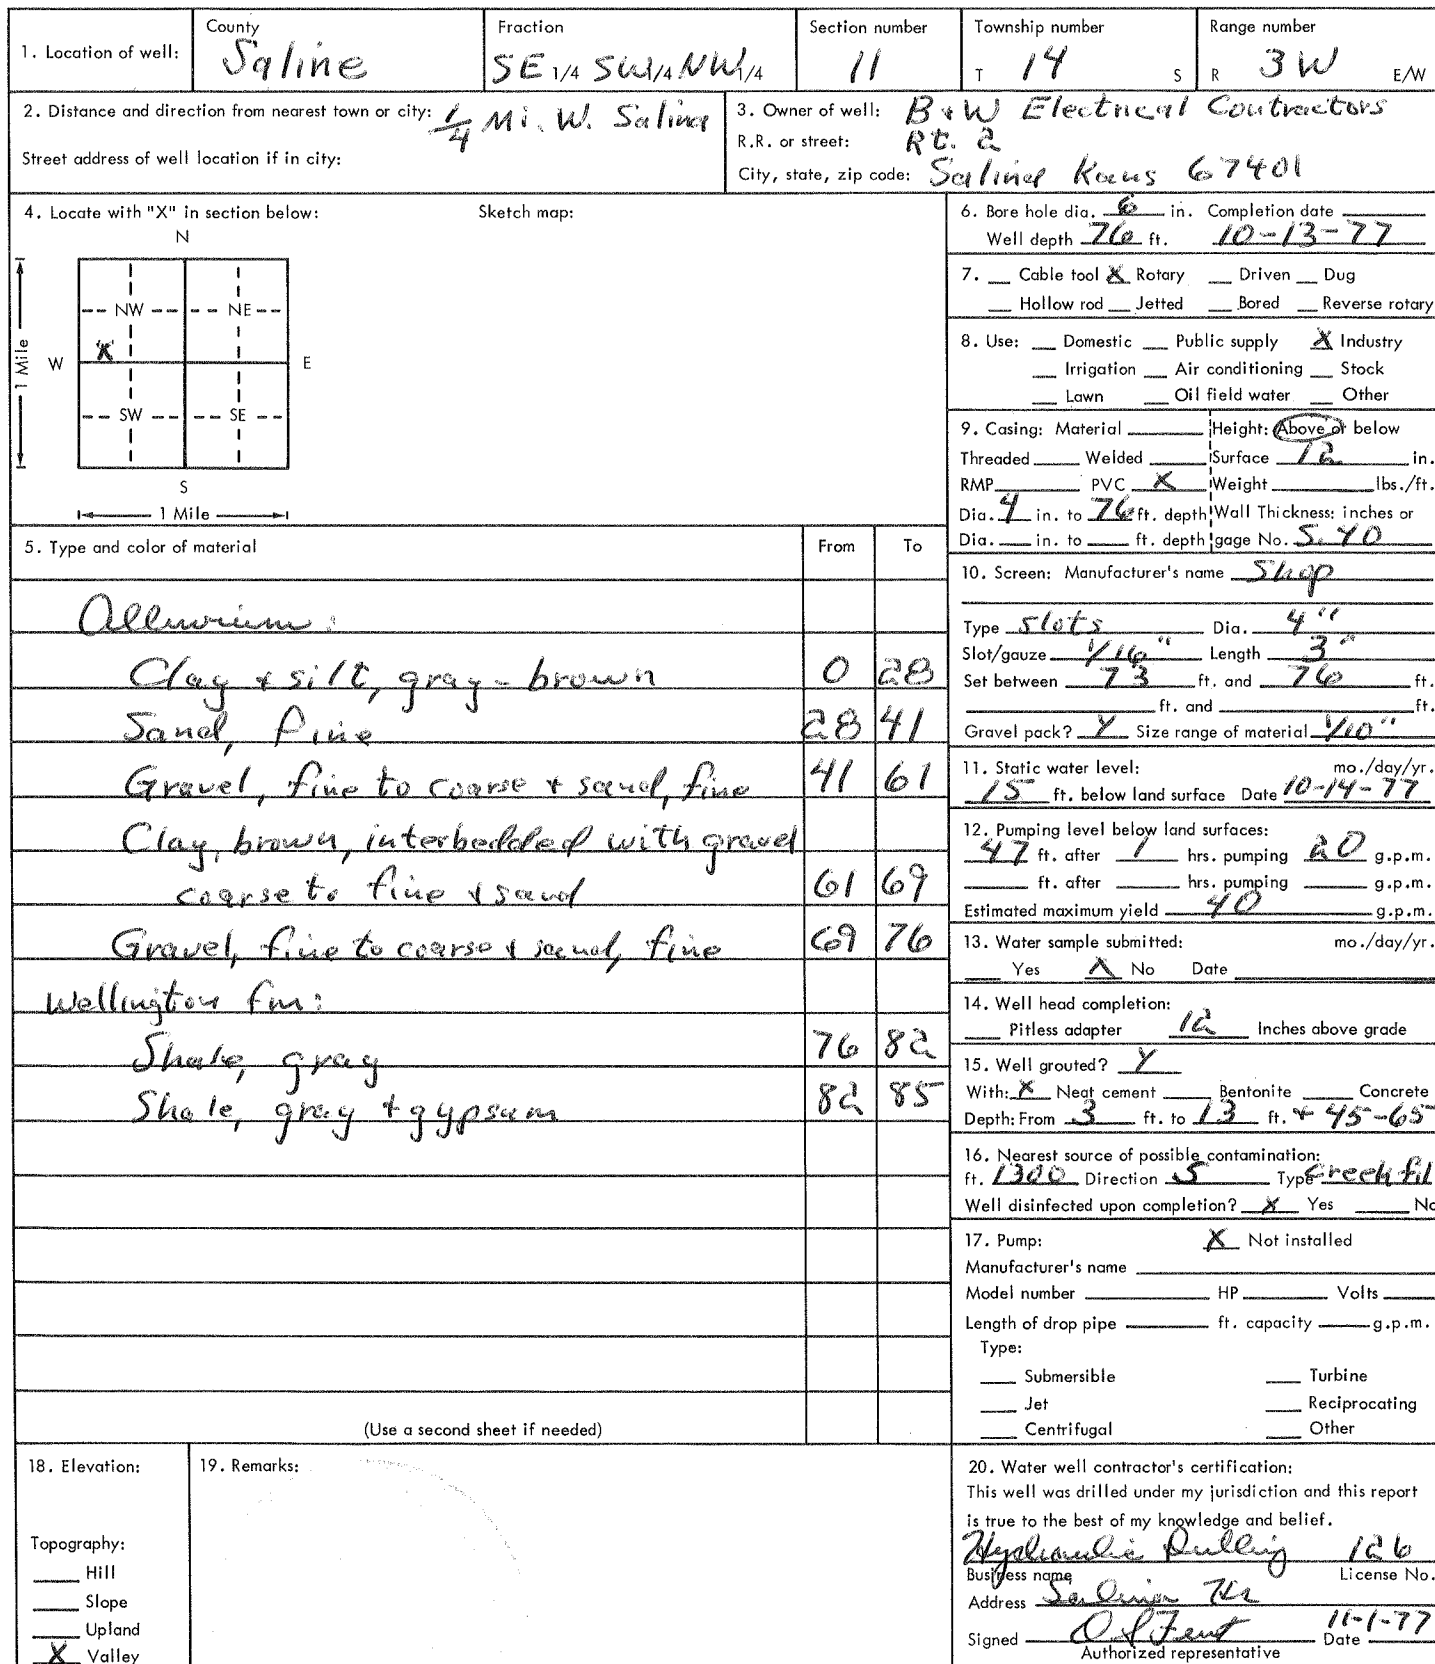 1. Location of well: County Saline Fraction SE 1/4 SW 1/4 NW 1/4 Section number 11 Township number T 14 S Range number R 3 W E/W
2. Distance and direction from nearest town or city: 1/4 Mi. W. Salina
Street address of well location if in city:
3. Owner of well: B & W Electrical Contractors
R.R. or street: Rt. 2
City, state, zip code: Salina Kans 67401
4. Locate with "X" in section below: Sketch map:
N
NW NE
X
W E
1 Mile
SW SE
S
1 Mile
5. Type and color of material From To
Alluvium:
Clay & silt, gray-brown 0 28
Sand, fine 28 41
Gravel, fine to coarse & sand, fine 41 61
Clay, brown, interbedded with gravel
coarse to fine & sand 61 69
Gravel, fine to coarse & sand, fine 69 76
Wellington fm:
Shale, gray 76 82
Shale, gray & gypsum 82 85
(Use a second sheet if needed)
6. Bore hole dia. 6 in. Completion date
Well depth 76 ft. 10-13-77
7. __ Cable tool X Rotary __ Driven __ Dug
__ Hollow rod __ Jetted __ Bored __ Reverse rotary
8. Use: __ Domestic __ Public supply X Industry
__ Irrigation __ Air conditioning __ Stock
__ Lawn __ Oil field water __ Other
9. Casing: Material ____ Height: Above or below
Threaded ____ Welded ____ Surface 12 in.
RMP ____ PVC X Weight ____ lbs./ft.
Dia. 4 in. to 76 ft. depth Wall Thickness: inches or
Dia. __ in. to __ ft. depth gage No. S. 40
10. Screen: Manufacturer's name Shop
Type slots Dia. 4"
Slot/gauze 1/16" Length 3"
Set between 73 ft. and 76 ft.
____ ft. and ____ ft.
Gravel pack? Y Size range of material 1/10"
11. Static water level: mo./day/yr.
15 ft. below land surface Date 10-14-77
12. Pumping level below land surfaces:
47 ft. after 1 hrs. pumping 20 g.p.m.
____ ft. after ____ hrs. pumping ____ g.p.m.
Estimated maximum yield 40 g.p.m.
13. Water sample submitted: mo./day/yr.
__ Yes X No Date
14. Well head completion:
__ Pitless adapter 12 Inches above grade
15. Well grouted? Y
With: X Neat cement __ Bentonite __ Concrete
Depth: From 3 ft. to 13 ft. & 45-65
16. Nearest source of possible contamination:
ft. 1300 Direction S Type Creek fil
Well disinfected upon completion? X Yes __ No
17. Pump: X Not installed
Manufacturer's name
Model number ____ HP ____ Volts
Length of drop pipe ____ ft. capacity ____ g.p.m.
Type:
__ Submersible __ Turbine
__ Jet __ Reciprocating
__ Centrifugal __ Other
18. Elevation:
Topography:
__ Hill
__ Slope
__ Upland
X Valley
19. Remarks:
20. Water well contractor's certification:
This well was drilled under my jurisdiction and this report
is true to the best of my knowledge and belief.
Hydraulic Drilling 126
Business name License No.
Address Salina Ks
Signed O S Fent Date 11-1-77
Authorized representative